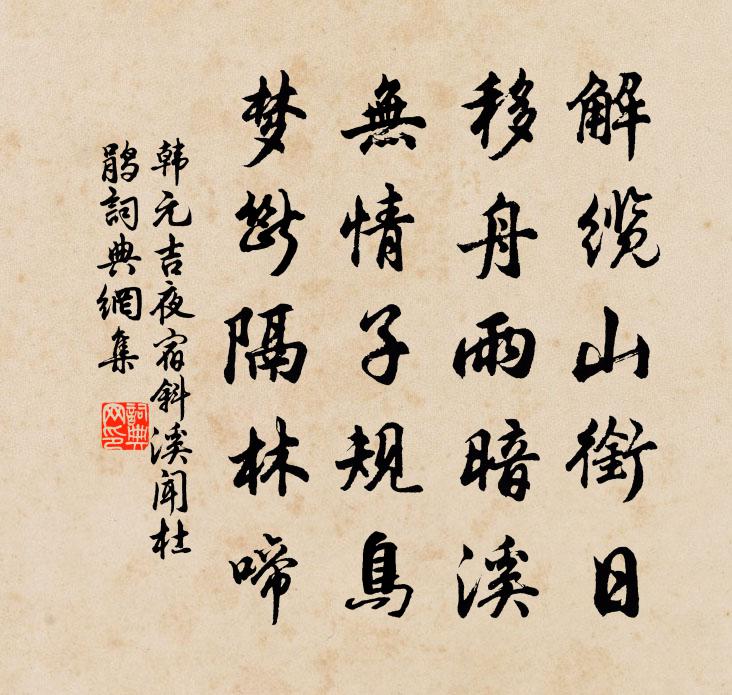 解缆山銜日
移舟雨暗溪
無情子規鳥
梦断隔林啼
韩元吉夜宿斜溪闻杜
鹃詞典網集
詞典
网印